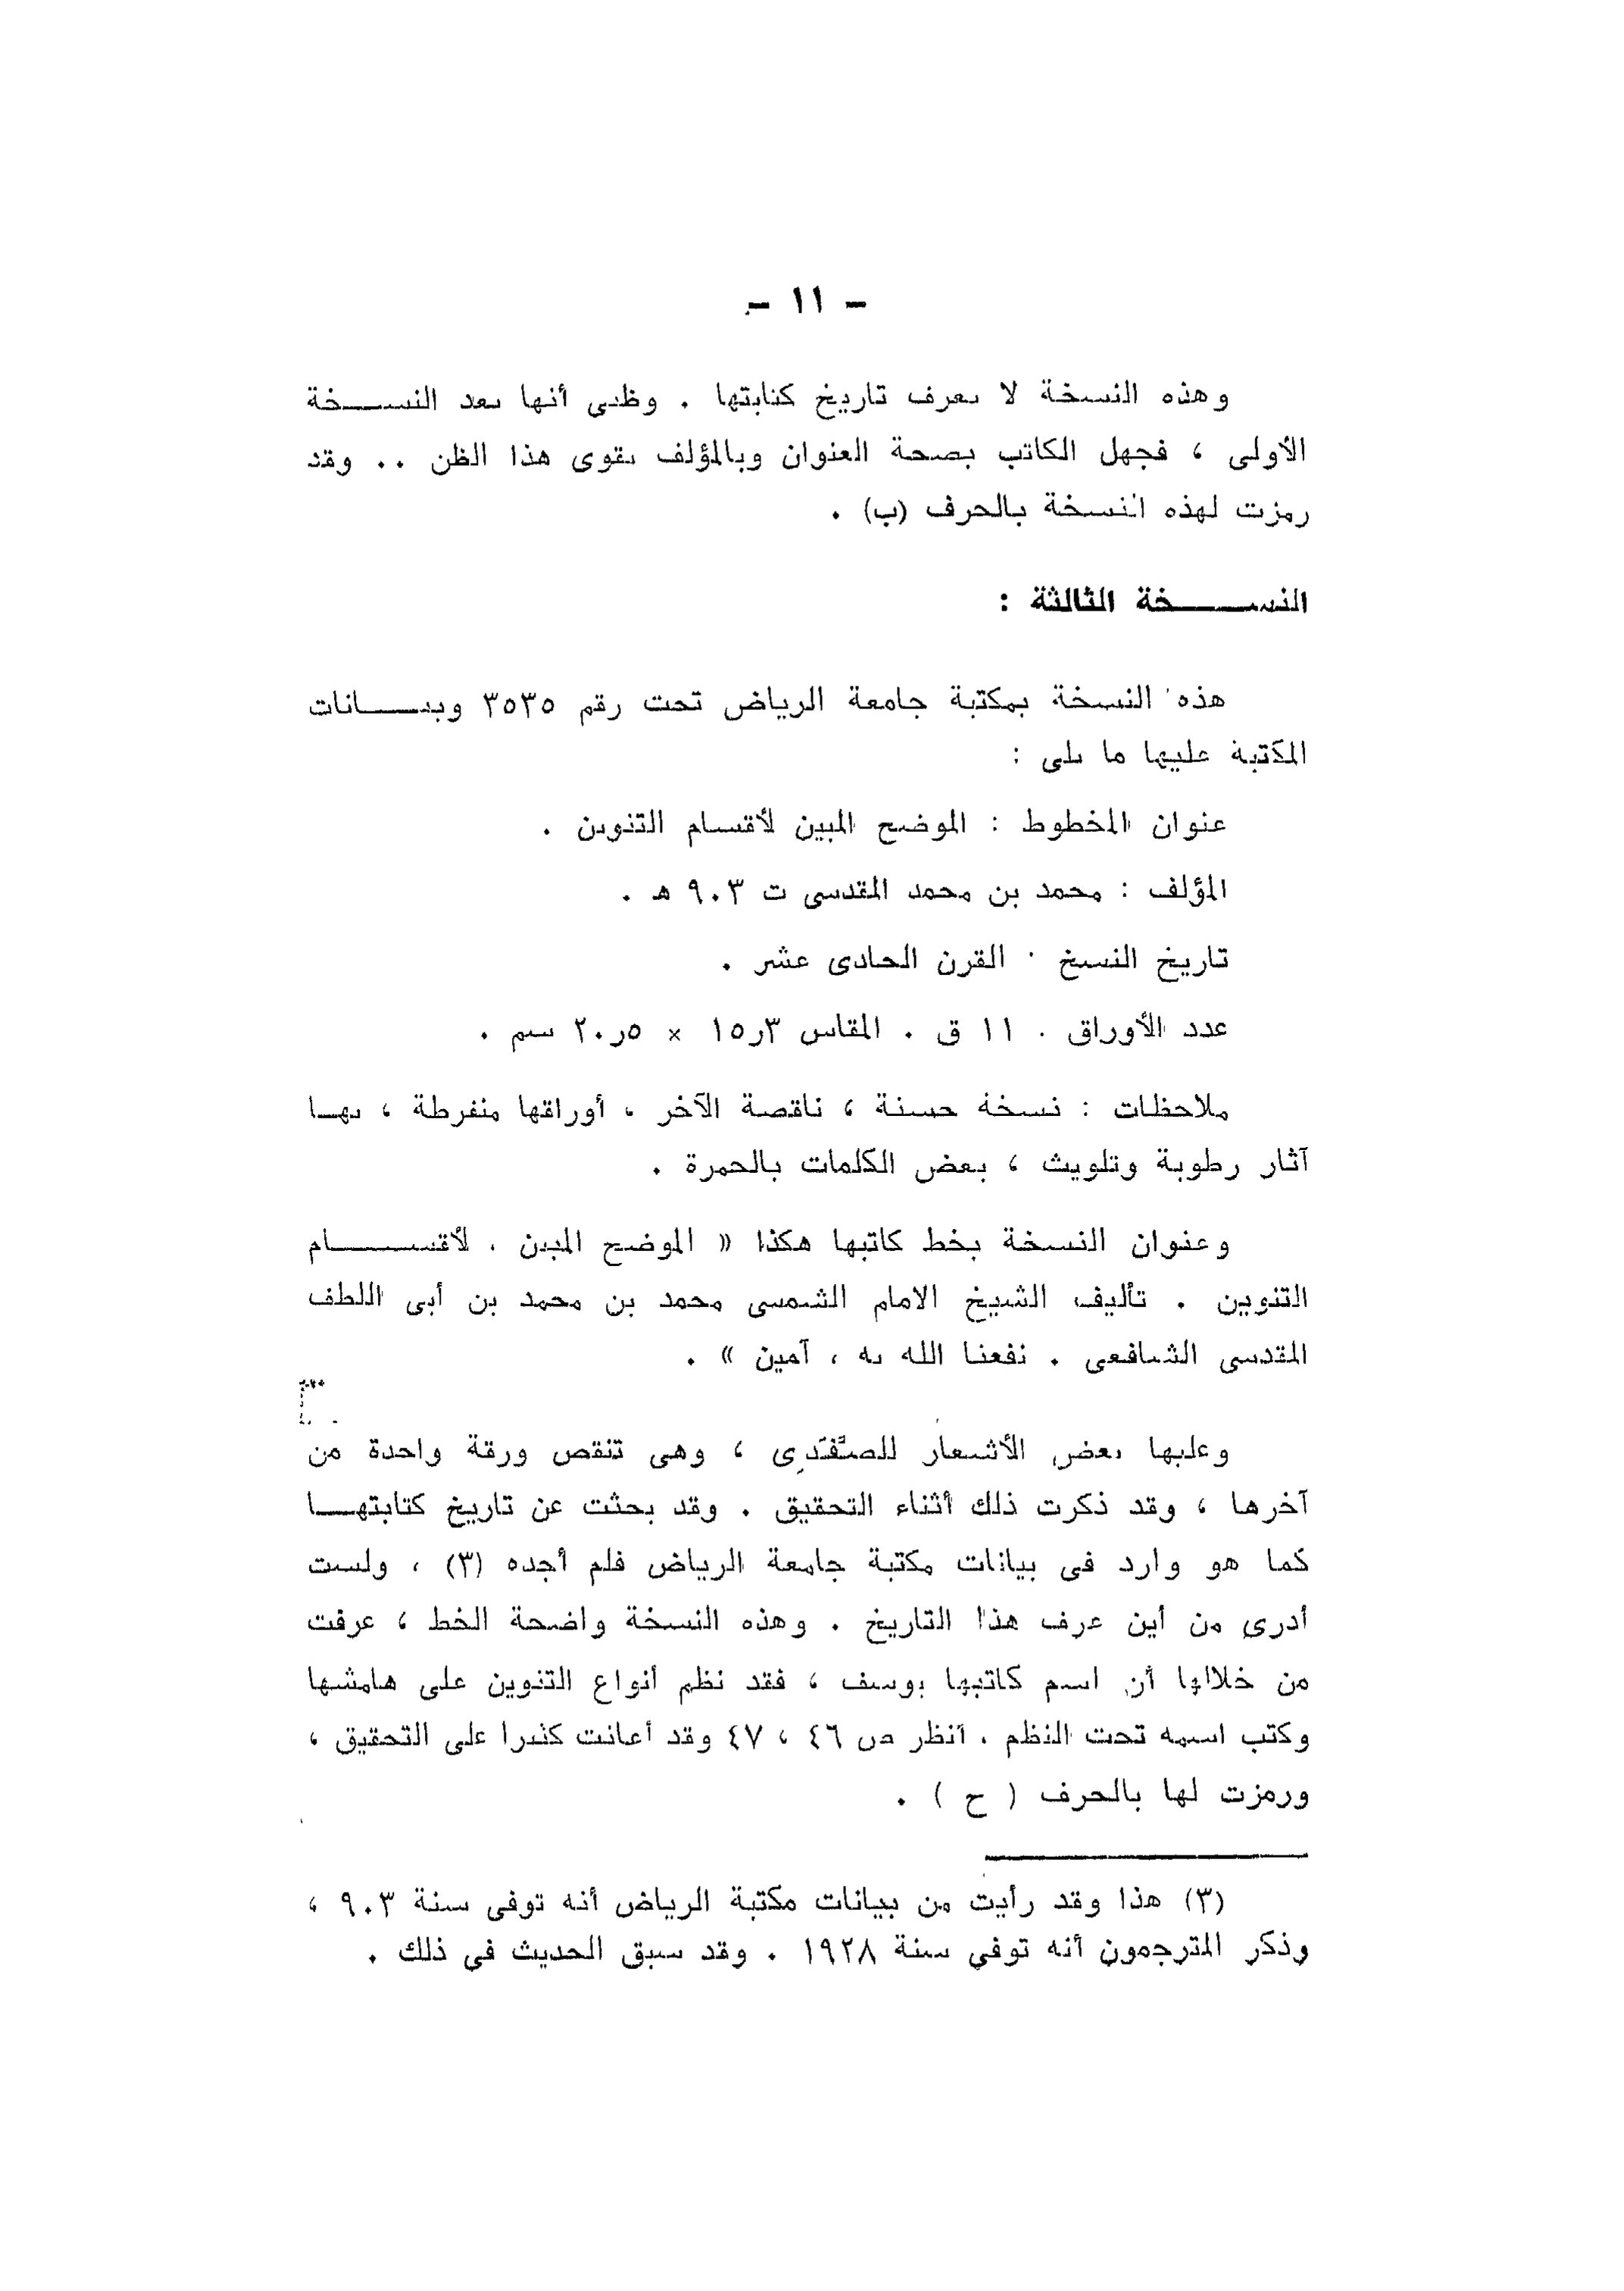 - ١١ -
وهذه النسخة لا يعرف تاريخ كتابتها . وظنى أنها بعد النسخة
الأولى ، فجهل الكاتب بصحة العنوان وبالمؤلف يقوى هذا الظن .. وقد
رمزت لهذه النسخة بالحرف (ب) .
النسخة الثالثة :
هذه النسخة بمكتبة جامعة الرياض تحت رقم ٣٥٣٥ وبيانات
المكتبة عليها ما يلى :
عنوان المخطوط : الموضح المبين لأقسام التنوين .
المؤلف : محمد بن محمد المقدسى ت ٩٠٣ هـ .
تاريخ النسخ : القرن الحادى عشر .
عدد الأوراق . ١١ ق . المقاس ١٥٫٣ × ٢٠٫٥ سم .
ملاحظات : نسخة حسنة ، ناقصة الآخر ، أوراقها منفرطة ، بها
آثار رطوبة وتلويث ، بعض الكلمات بالحمرة .
وعنوان النسخة بخط كاتبها هكذا « الموضح المبين . لأقسام
التنوين . تأليف الشيخ الامام الشمسى محمد بن محمد بن أبى اللطف
المقدسى الشافعى . نفعنا الله به ، آمين » .
وعليها بعض الأشعار للصَّفَدِى ، وهى تنقص ورقة واحدة من
آخرها ، وقد ذكرت ذلك أثناء التحقيق . وقد بحثت عن تاريخ كتابتها
كما هو وارد فى بيانات مكتبة جامعة الرياض فلم أجده (٣) ، ولست
أدرى من أين عرف هذا التاريخ . وهذه النسخة واضحة الخط ، عرفت
من خلالها أن اسم كاتبها يوسف ، فقد نظم أنواع التنوين على هامشها
وكتب اسمه تحت النظم . انظر ص ٤٦ ، ٤٧ وقد أعانت كثيرا على التحقيق ،
ورمزت لها بالحرف ( ح ) .
(٣) هذا وقد رأيت من بيانات مكتبة الرياض أنه توفى سنة ٩٠٣ ،
وذكر المترجمون أنه توفي سنة ١٩٢٨ . وقد سبق الحديث في ذلك .